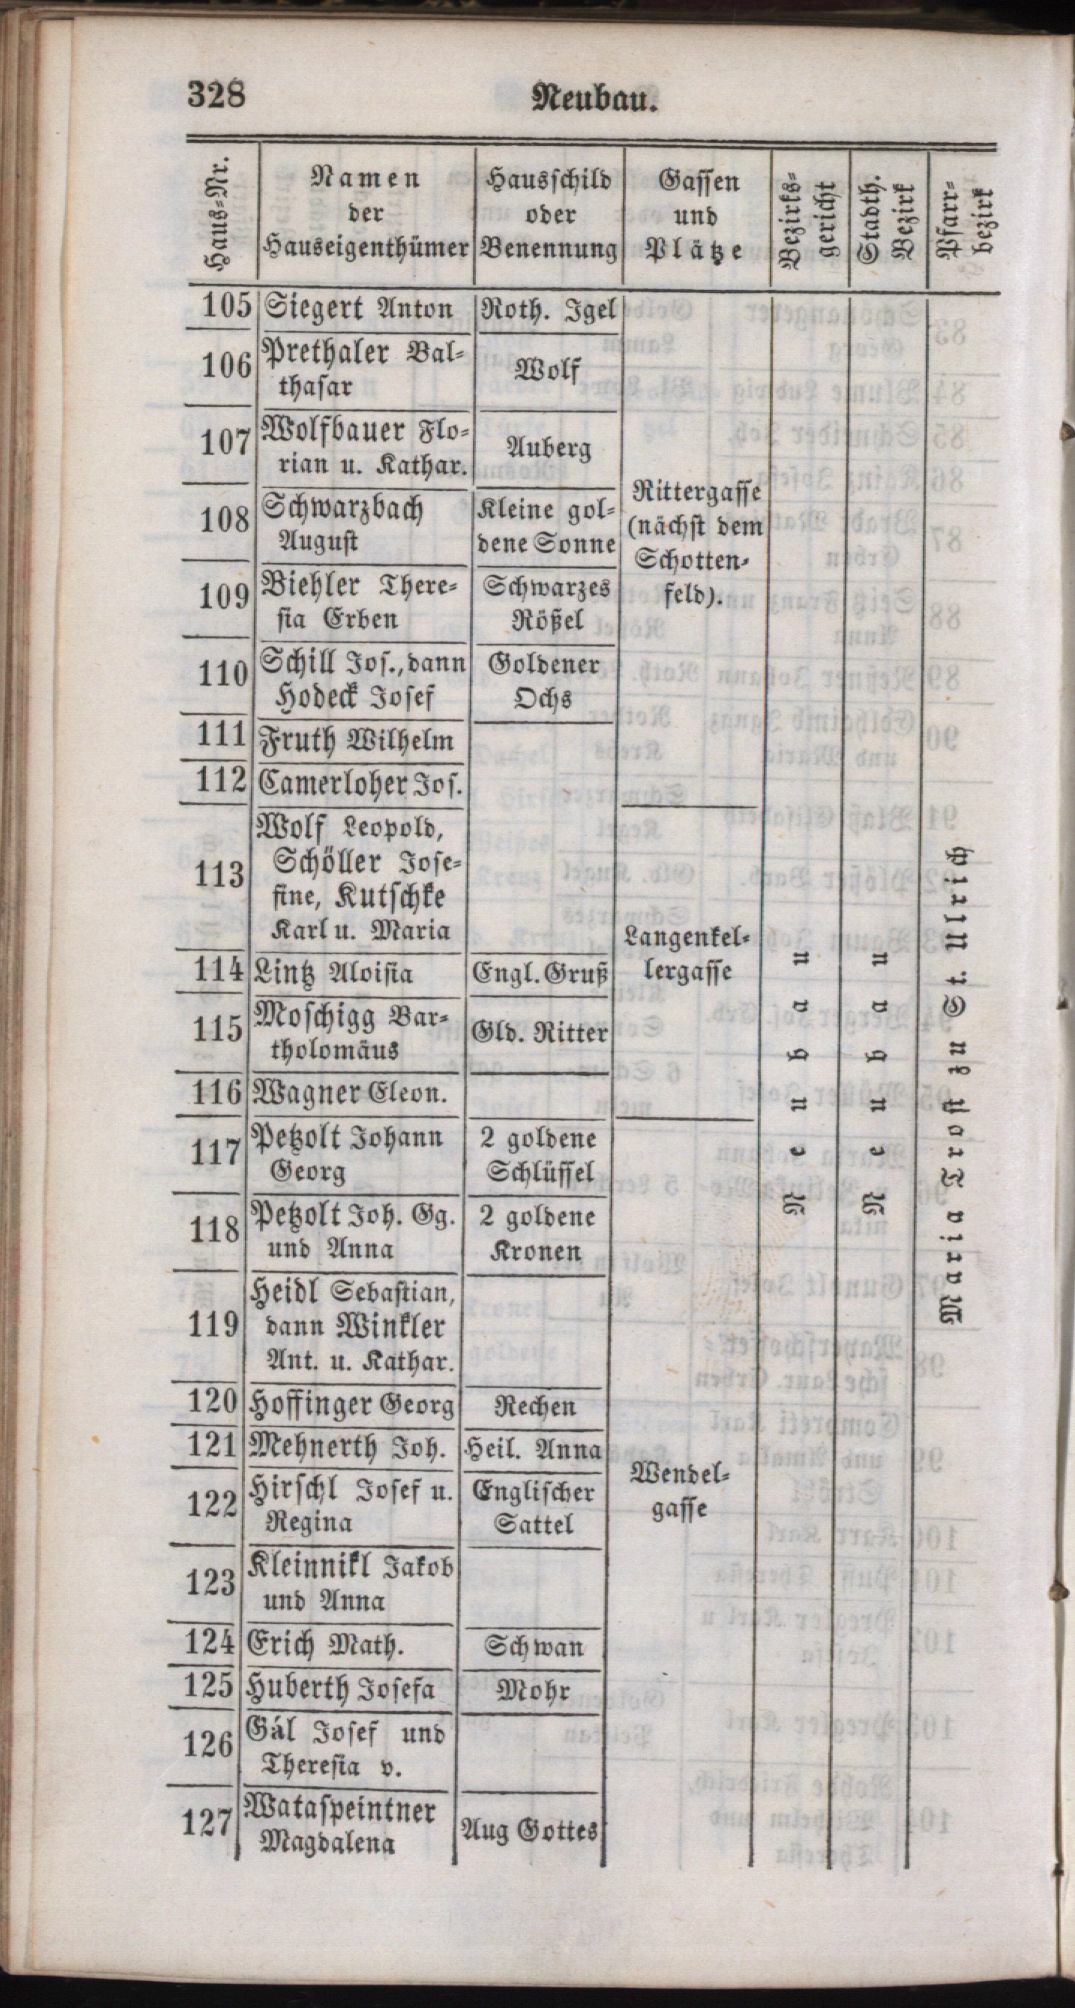 328
Neubau.
Haus-Nr.
Namen
der
Hauseigenthümer
Hausschild
oder
Benennung
Gassen
und
Plätze
Bezirks-
gericht
Stadth.
Bezirk
Pfarr-
bezirk
105 Siegert Anton Roth. Igel
106 Prethaler Bal-
thasar
Wolf
107 Wolfbauer Flo-
rian u. Kathar.
Auberg
108 Schwarzbach
August
Kleine gol-
dene Sonne
109 Biehler There-
sia Erben
Schwarzes
Rößel
110 Schill Jos., dann
Hodeck Josef
Goldener
Ochs
111 Fruth Wilhelm
112 Camerloher Jos.
Rittergasse
(nächst dem
Schotten-
feld).
113 Wolf Leopold,
Schöller Jose-
fine, Kutschke
Karl u. Maria
114 Lintz Aloisia Engl. Gruß
115 Moschigg Bar-
tholomäus
Gld. Ritter
116 Wagner Eleon.
Langenkel-
lergasse
117 Petzolt Johann
Georg
2 goldene
Schlüssel
118 Petzolt Joh. Gg.
und Anna
2 goldene
Kronen
119 Heidl Sebastian,
dann Winkler
Ant. u. Kathar.
120 Hoffinger Georg Rechen
121 Mehnerth Joh. Heil. Anna
122 Hirschl Josef u.
Regina
Englischer
Sattel
123 Kleinnikl Jakob
und Anna
124 Erich Math. Schwan
125 Huberth Josefa Mohr
126 Gál Josef und
Theresia v.
127 Wataspeintner
Magdalena
Aug Gottes
Wendel-
gasse
Neubau
Neubau
Maria Trost zu St. Ulrich